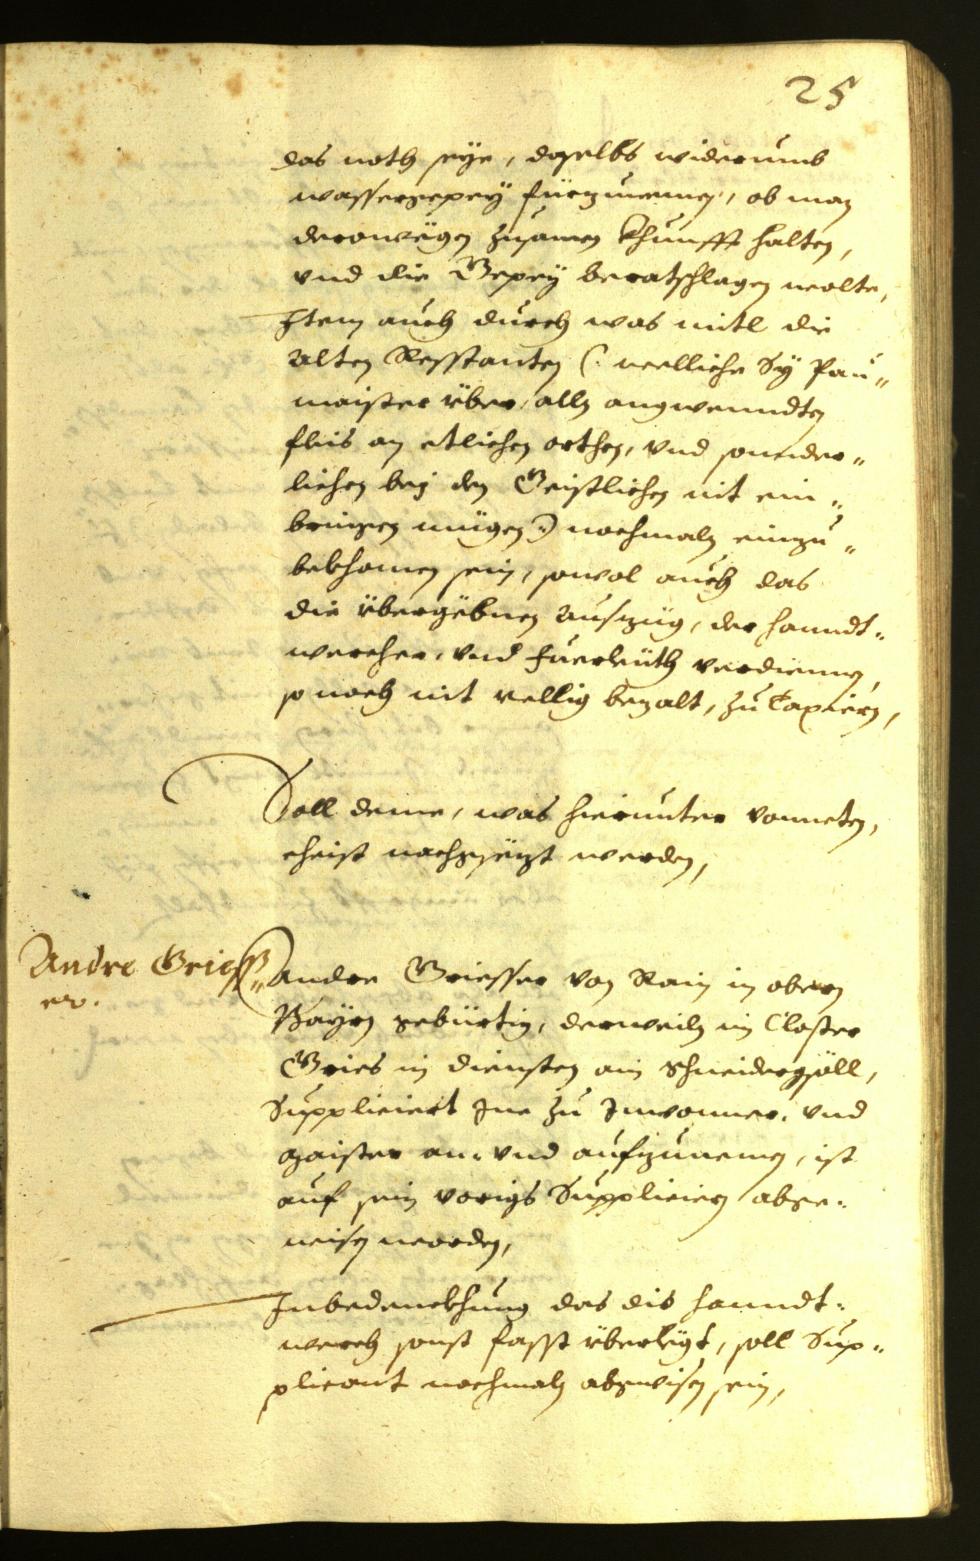 25
das noth seÿe, daselbs widerumb
wassergepeÿ fürzunemen, ob man
derowegen zusamen Khunfft halten,
vnd die Gepeÿ beratschlagen wolte,
Item auch durch was mitl die
alten Resstanten (: welliche Sÿ Pau=
maister über allen angwenndten
fleis an etlichen orthen, vnd sonnder=
lichen bei den Geistlichen nit ein=
bringen mügen :) nochmaln einzu=
bekhomen sein, sowol auch das
die übergebnen auszüg, der hanndt=
wercher, vnd fuerleüth verdienen,
so noch nit vellig bezalt, zu Taxiern,
Soll deme, was hierunter vonneten,
eheist nachgesezt werden,
Andre Griess=
er.
Andre Griesser von Rain in obern
Bayrn gebürtig, derweiln im Closter
Gries in diensten ain schneidergsöll,
Suppliciert Ine zu Inwonner, vnd
maister an= vnd aufzunemen, ist
auf sein vorigs Supplicieren abge=
wisen worden,
Inbedenckhung das dis hanndt=
werch sonst fasst überlegt, soll Sup=
plicant nochmaln abgewisen sein,